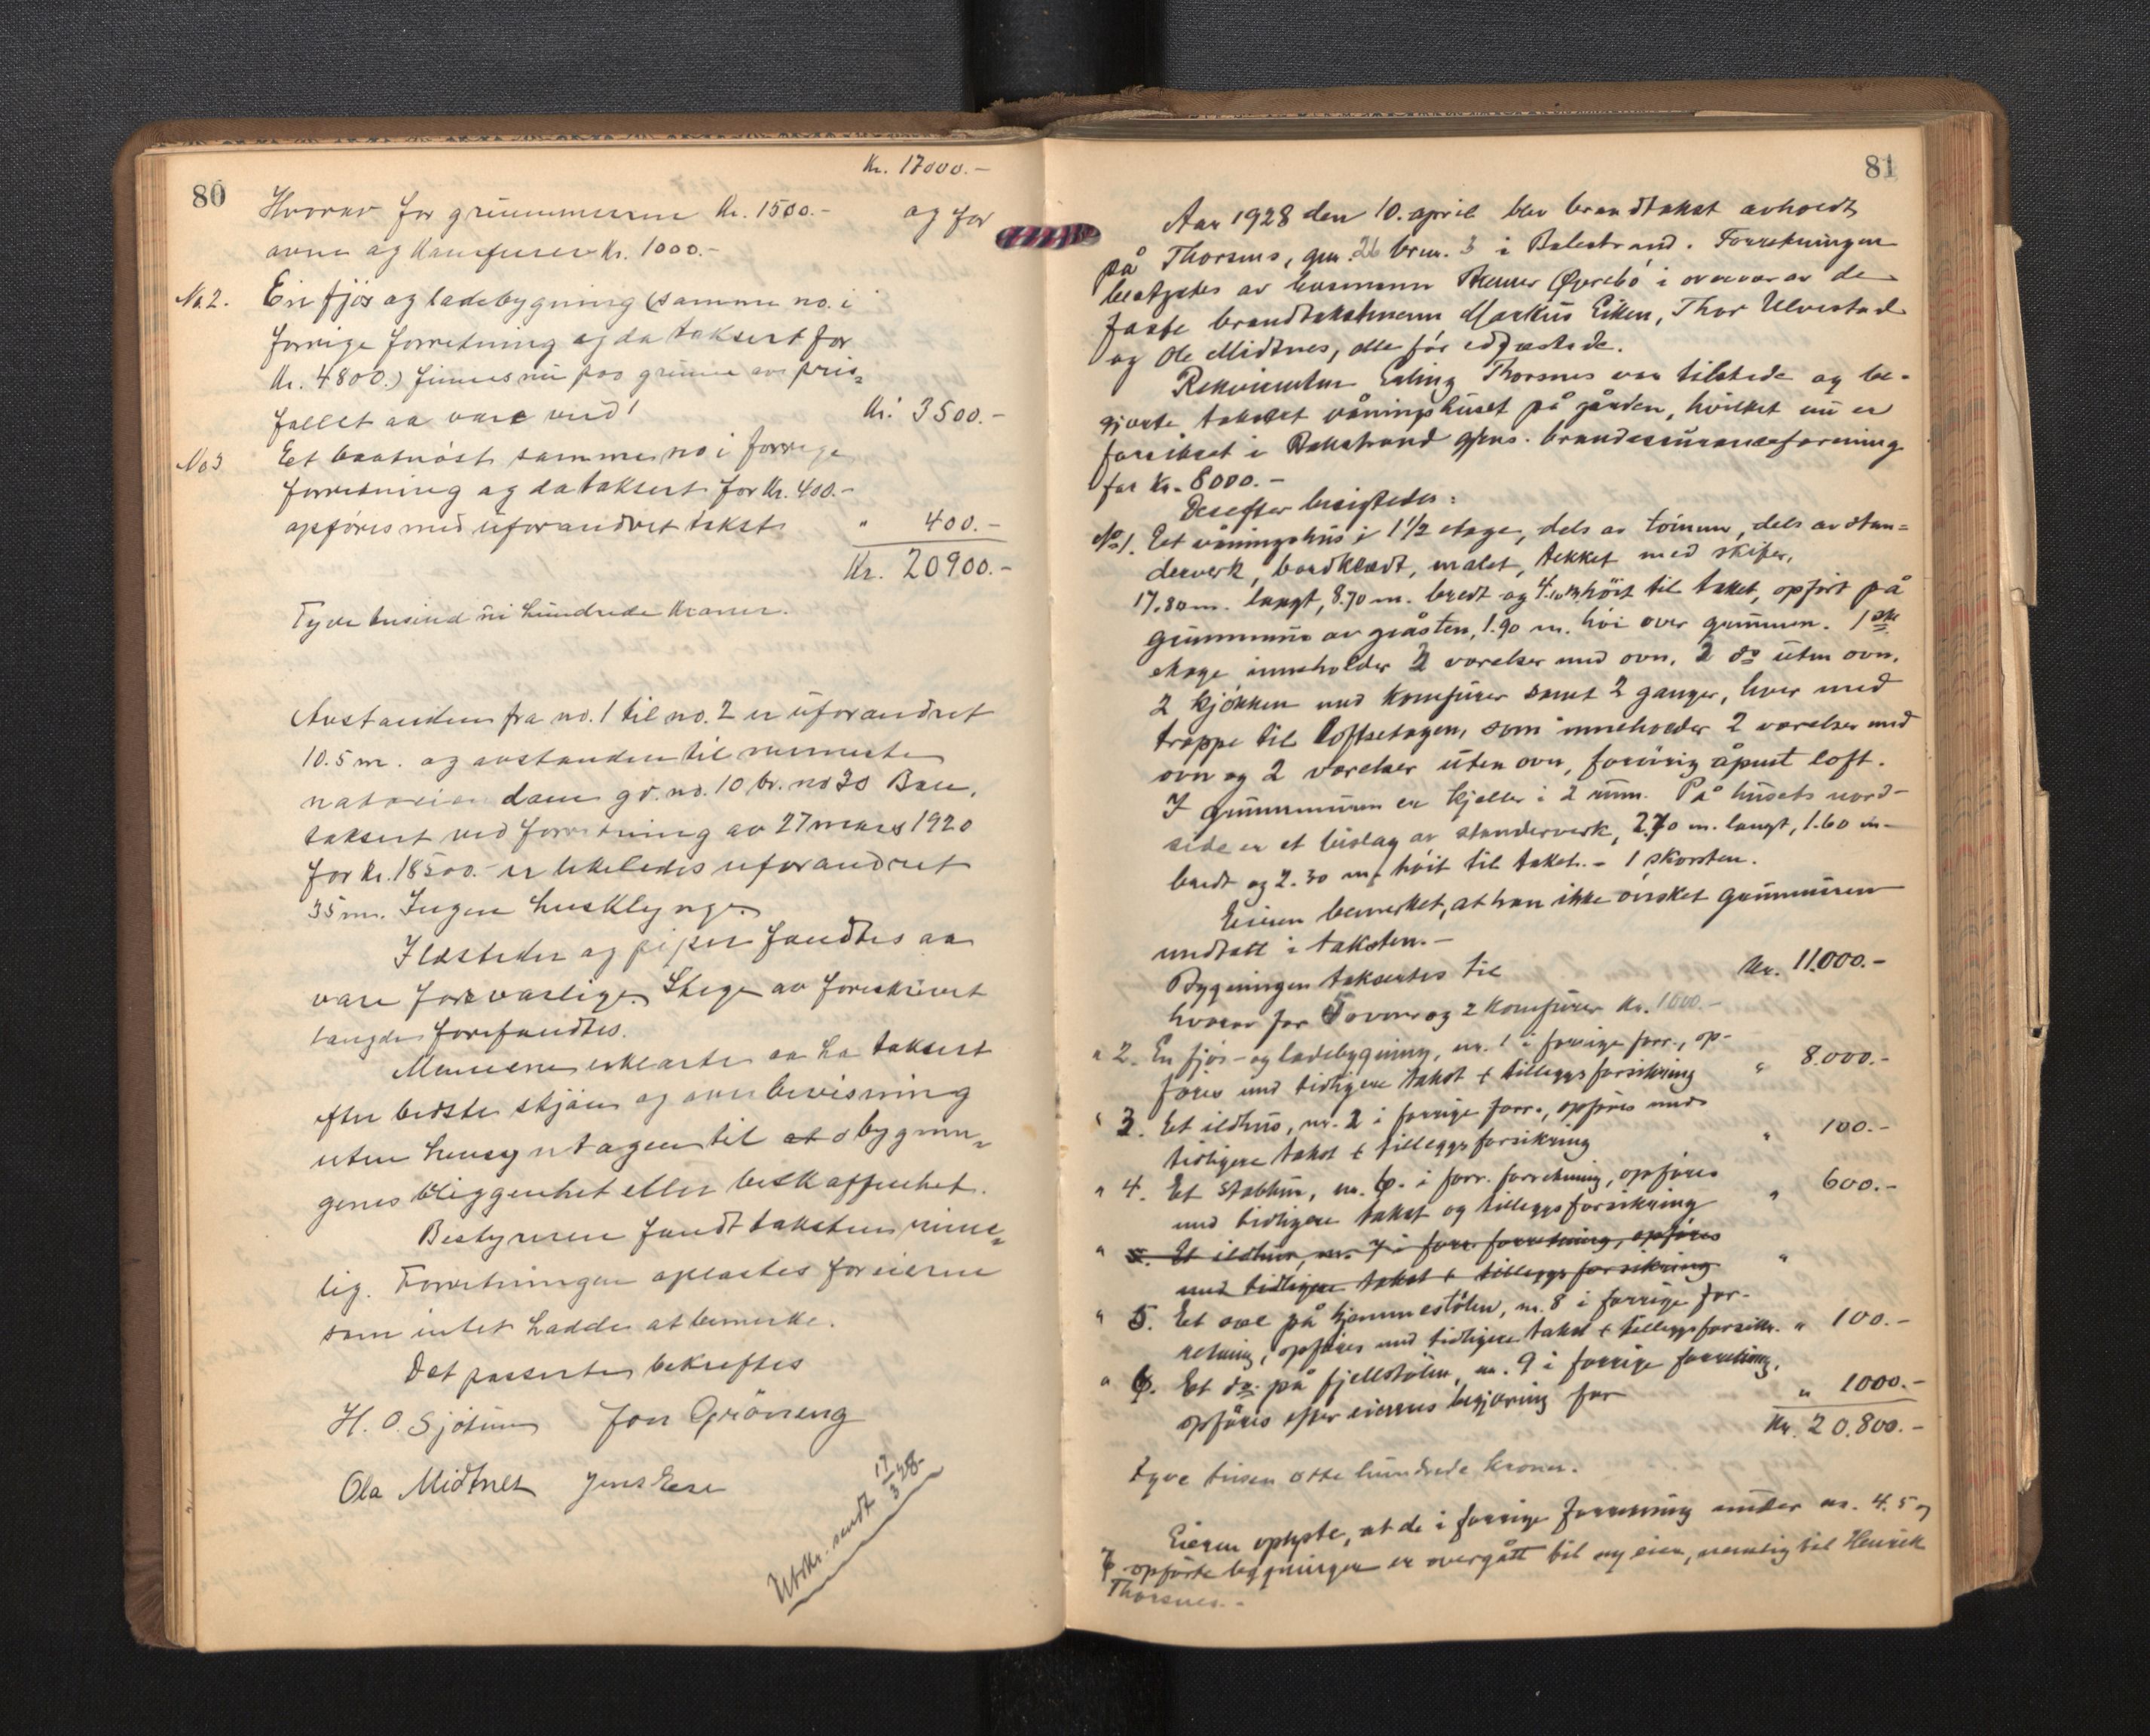 80
Kr. 17000.-
Hvorav for grunnmuren Kr. 1500.- og for
ovne og Komfurer Kr. 1000.-
No 2. Ein fjös og ladebygning (samme no. i
forrige forretning og da taksert for
Kr. 4800.) finnes nu paa grunn av pris=
fallet aa være verd! Kr. 3500.-
No 3 Et baatnöst samme no i forrige
forretning og da taksert for Kr. 400.-
opföres med uforandret takst " 400.-
Kr. 20900.-
Tyve tusind ni hundrede Kroner.
Avstanden fra no. 1 til no. 2 er uforandret
10.5 m. og avstanden til nermeste
dam gr. no. 10 br. no 30 Bale,
taksert ved forretning av 27 mars 1920
for Kr. 18500.- er likeledes uforandret
35 m. Ingen husklynge.
Ildsteder og piper fandtes aa
være forsvarlige. Stige av foreskrevet
længde forefandtes.
Mennene erklærte aa ha taksert
efter bedste skjön og overbevisning
uten hensyntagen til bygnin=
genes beliggenhet eller beskaffenhet.
Bestyreren fandt taksten rime=
lig. Forretningen oplæstes for eieren
som intet hadde at bemerke.
Det passerte bekreftes
H. O. Sjötun Jon Gröneng
Ola Midtnes Jens Ese
Utskr. sendt 17/3 28.
81
Aar 1928 den 10. april blev brandtakst avholdt
på Thorsnes, gnr. 26 brnr. 3 i Balestrand. Forretningen
bestyrtes av lensmann Øvrebö i overvær av de
faste brandtakstmenn Markus Eiken, Thor Ulvestad
og Ole Midtnes, alle för edfæstede.
Rekvirenten Erling Thorsnes var tilstede og be-
gjærte taksert våningshuset på gården, hvilket nu er
forsikret i Balestrand gjens. brandassuranceforening
for Kr. 8000.-
Derefter besigtedes:
No 1. Et våningshus i 1 1/2 etage, dels av tömmer, dels av stan=
derverk, bordklædt, malet, tekket med skifer,
17.80 m. langt, 8.70 m. bredt og 4.10 m höit til taket, opfört på
grunnmur av gråsten, 1.90 m. höi over grunnen. 1ste
etage inneholder 2 værelser med ovn, 2 do uten ovn,
2 kjökken med komfurer samt 2 ganger, hver med
trappe til loftsetagen, som inneholder 2 værelser med
ovn og 2 værelser uten ovn, forövrig åpent loft.
I grunnmuren er kjeller i 2 rum. På husets nord-
side er et bislag av standerverk, 2.70 m. langt, 1.60 m
bredt og 2.30 m. höit til taket. - 1 skorsten.
Eieren bemerket, at han ikke önsket grunnmuren
undtatt i taksten.-
Bygningen taksertes til Kr. 11.000.-
hvorav for 5 ovner og 2 komfurer Kr. 1000.-
" 2. En fjös- og ladebygning, nr. 1 i forrige forr., op-
föres med tidligere takst + tilleggsforsikring " 8.000.-
" 3. Et ildhus, nr. 2 i forrige forr., opföres med
tidligere takst + tilleggsforsikring " 100.-
" 4. Et stabbur, nr. 6. i forr. forretning, opföres
med tidligere takst og tilleggsforsikring " 600.-
" 5. Et ildhus, nr. 7 i forr. forretning, opföres
med tidligere takst + tilleggsforsikring "
" 5. Et sel på hjemmestölen, nr. 8 i forrige for-
retning, opföres med tidligere takst + tilleggsforsikr. " 100.-
" 6. Et do. på fjellstölen, nr. 9 i forrige forretning,
opföres efter eierens begjæring for " 1000.-
Kr. 20.800.-
Tyve tusen otte hundrede kroner.
Eieren oplyste, at de i forrige forretning under nr. 4. 5 og
7 opförte bygninger er overgått til ny eier, nemlig til Henrik
Thorsnes.-